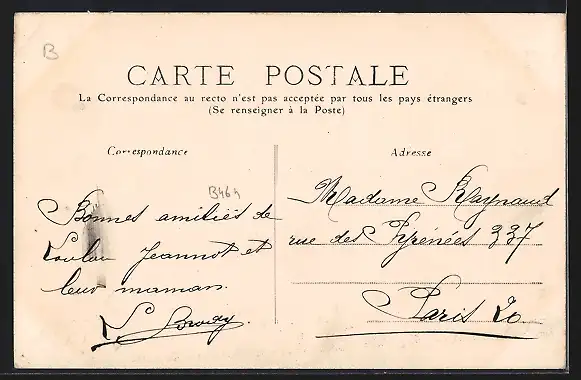 B
CARTE POSTALE
La Correspondance au recto n'est pas acceptée par tous les pays étrangers
(Se renseigner à la Poste)
Correspondance
Adresse
B464
Bonnes amitiés de
Loulou Jeannot et
leur maman.
Madame Raynaud
rue des Pyrénées 337
Paris 20